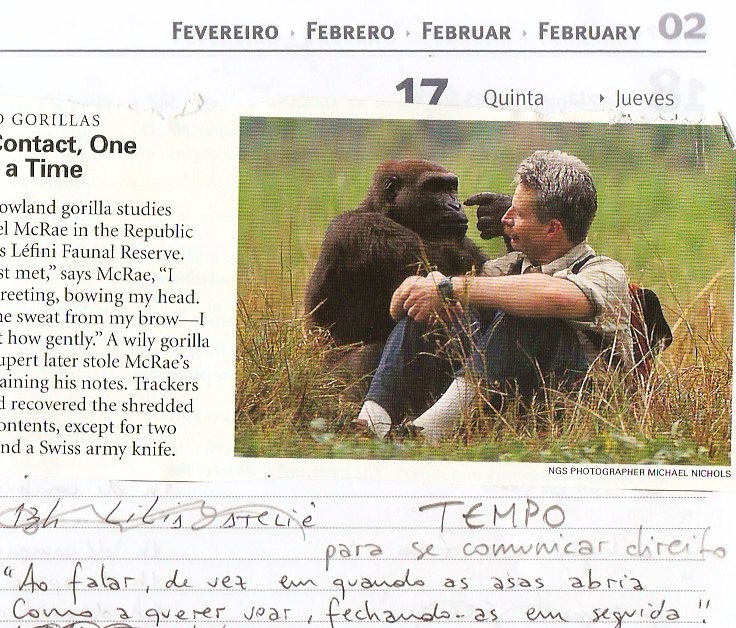 FEVEREIRO › FEBRERO › FEBRUAR › FEBRUARY 02
17 Quinta › Jueves
O GORILLAS
Contact, One
a Time
owland gorilla studies
el McRae in the Republic
s Léfini Faunal Reserve.
st met,” says McRae, “I
reeting, bowing my head.
he sweat from my brow—I
t how gently.” A wily gorilla
upert later stole McRae’s
aining his notes. Trackers
d recovered the shredded
ontents, except for two
nd a Swiss army knife.
NGS PHOTOGRAPHER MICHAEL NICHOLS
13h
TEMPO
para se comunicar direito
“Ao falar, de vez em quando as asas abria
Como a querer voar, fechando-as em seguida”.